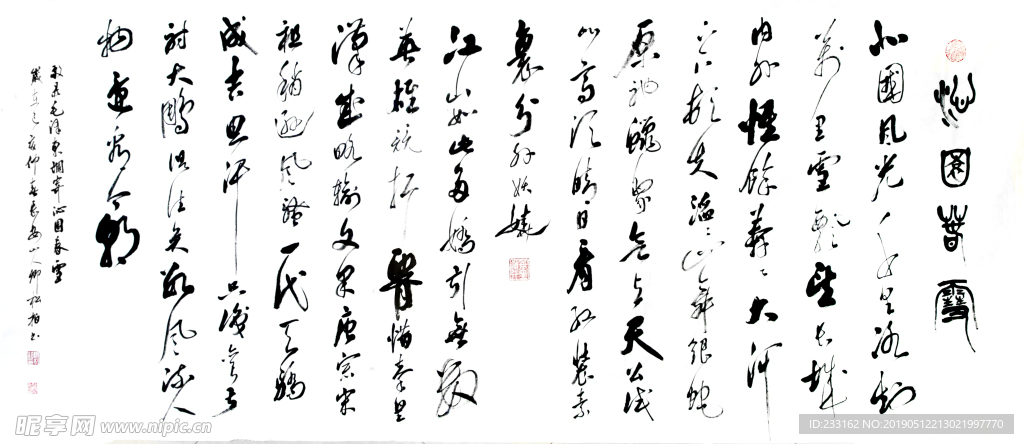 沁園春雪
北國風光千里冰封
萬里雪飄望長城
内外惟餘莽莽大河
上下頓失滔滔山舞銀蛇
原馳蠟象欲與天公試
比高須晴日看紅裝素
裹分外妖嬈
江山如此多嬌引無數
英雄競折腰惜秦皇
漢武略輸文采唐宗宋
祖稍遜風騷一代天驕
成吉思汗只識彎弓
射大鵰俱往矣數風流人
物還看今朝
敬录毛澤東調寄沁園春雪
昵享网 www.nipic.cn
ID:233162 NO:20190512213021997770